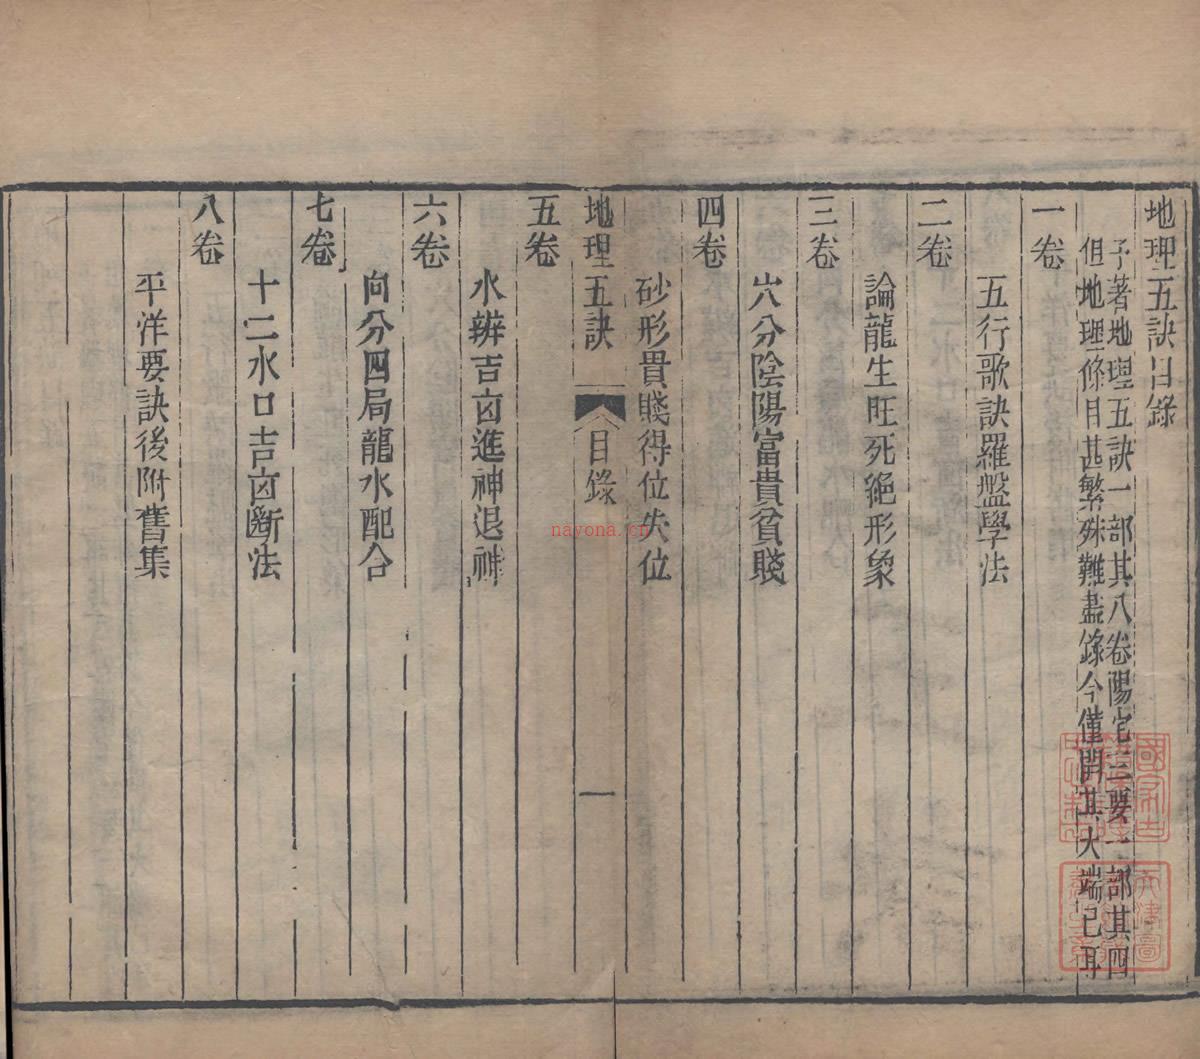 地理五訣目錄
予著地理五訣一部其八卷陽宅三要一部其四
但地理條目甚繁殊難盡錄今僅開其大端已耳
一卷
五行歌訣羅盤學法
二卷
論龍生旺死絕形象
三卷
穴分陰陽富貴貧賤
四卷
砂形貴賤得位失位
地理五訣 目錄 一
五卷
水辨吉凶進神退神
六卷
向分四局龍水配合
七卷
十二水口吉凶斷法
八卷
平洋要訣後附舊集
nayona.cn